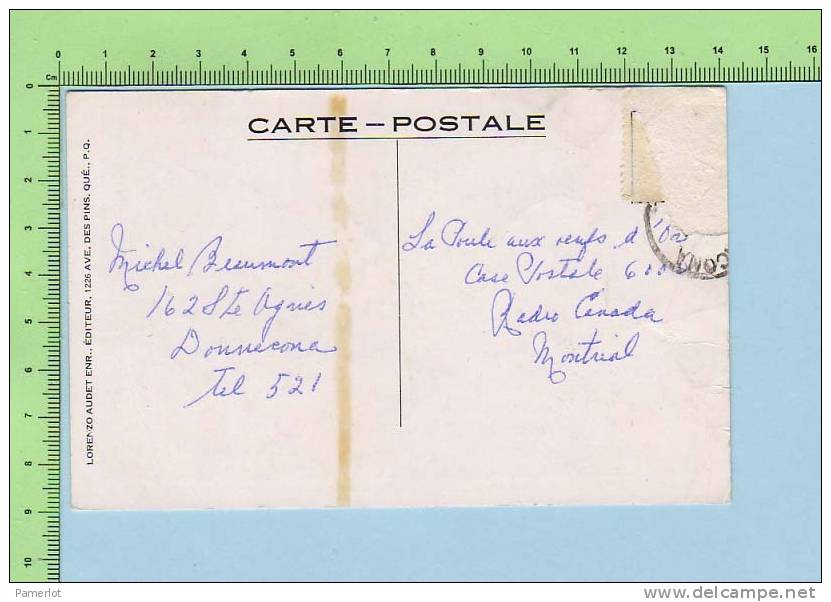 0 1 2 3 4 5 6 7 8 9 10 11 12 13 14 15 16
Cm
0
1
2
3
4
5
6
7
8
9
10
CARTE – POSTALE
LORENZO AUDET ENR., ÉDITEUR, 1226 AVE. DES PINS, QUÉ., P.Q.
Michel Beaumont
162 Ste Agnes
Donnacona
Tel 521
La Poule aux oeufs d'or
Case Postale 600
Radio Canada
Montréal
CONA
Pamerlot
delcampe.net